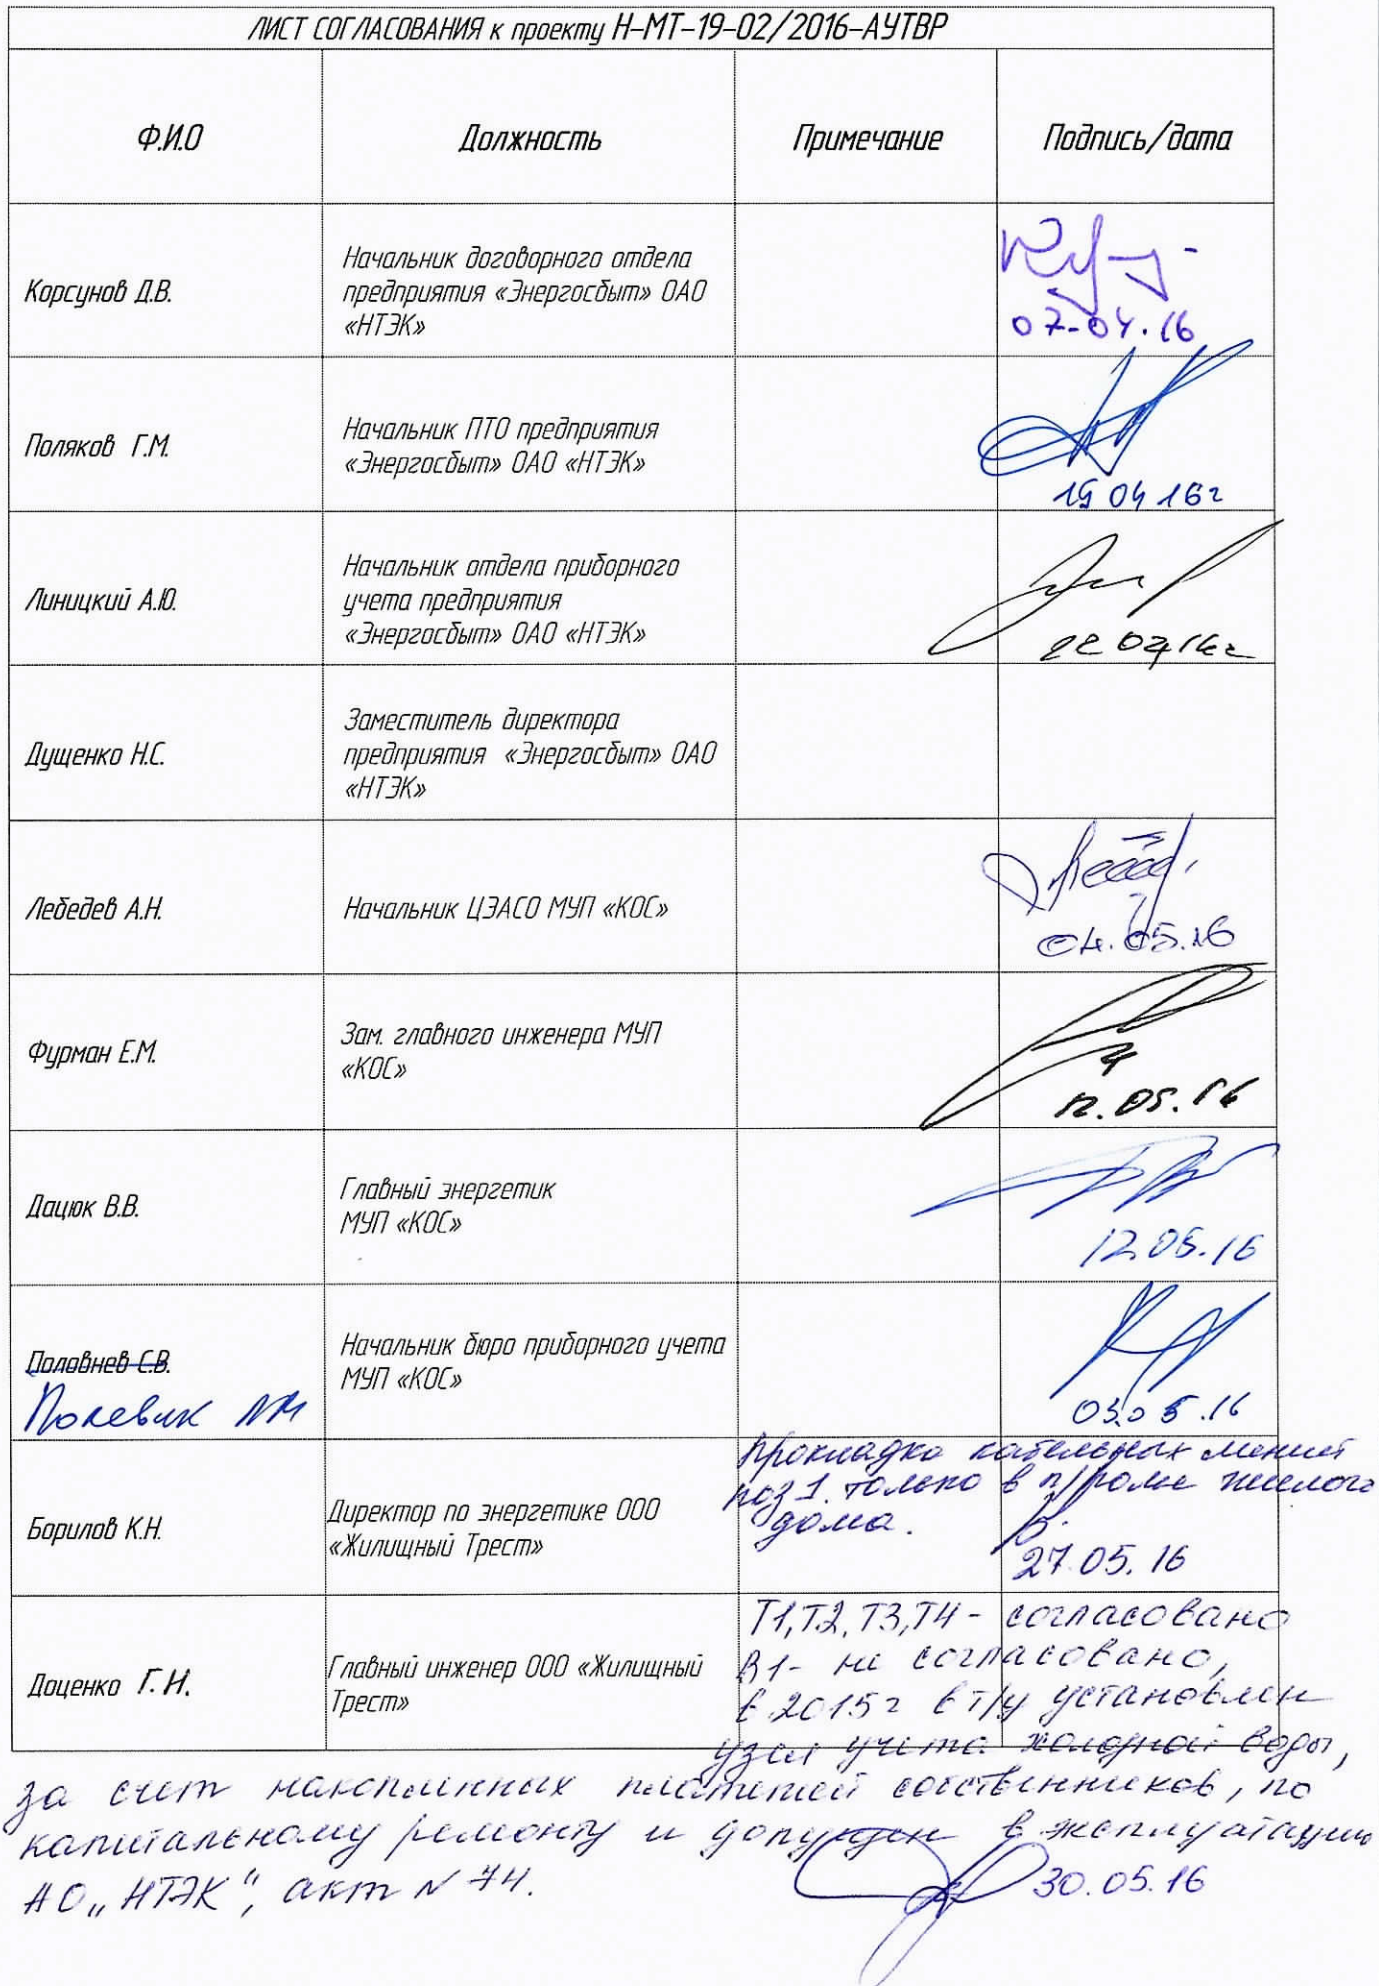 ЛИСТ СОГЛАСОВАНИЯ к проекту Н-МТ-19-02/2016-АУТВР
Ф.И.О
Должность
Примечание
Подпись/дата
Корсунов Д.В.
Начальник договорного отдела
предприятия «Энергосбыт» ОАО
«НТЭК»
07.04.16
Поляков Г.М.
Начальник ПТО предприятия
«Энергосбыт» ОАО «НТЭК»
19 04 16г
Линицкий А.Ю.
Начальник отдела приборного
учета предприятия
«Энергосбыт» ОАО «НТЭК»
Дущенко Н.С.
Заместитель директора
предприятия «Энергосбыт» ОАО
«НТЭК»
Лебедев А.Н.
Начальник ЦЭАСО МУП «КОС»
04.05.16
Фурман Е.М.
Зам. главного инженера МУП
«КОС»
12.05.16
Дацюк В.В.
Главный энергетик
МУП «КОС»
12.05.16
Половнев С.В.
Полевик
Начальник бюро приборного учета
МУП «КОС»
03.05.16
Борилов К.Н.
Директор по энергетике ООО
«Жилищный Трест»
Прокладка кабельных линий
поз 1. только в жилого
дома.
27.05.16
Доценко Г.Н.
Главный инженер ООО «Жилищный
Трест»
Т1,Т2,Т3,Т4 - согласовано
В1- не согласовано,
в 2015г в т/у установлен
узел учета холодной воды,
за счет накопленных платежей собственников, по
капитальному ремонту и допущен в эксплуатацию
АО „НТЭК", акт N 74.
30.05.16